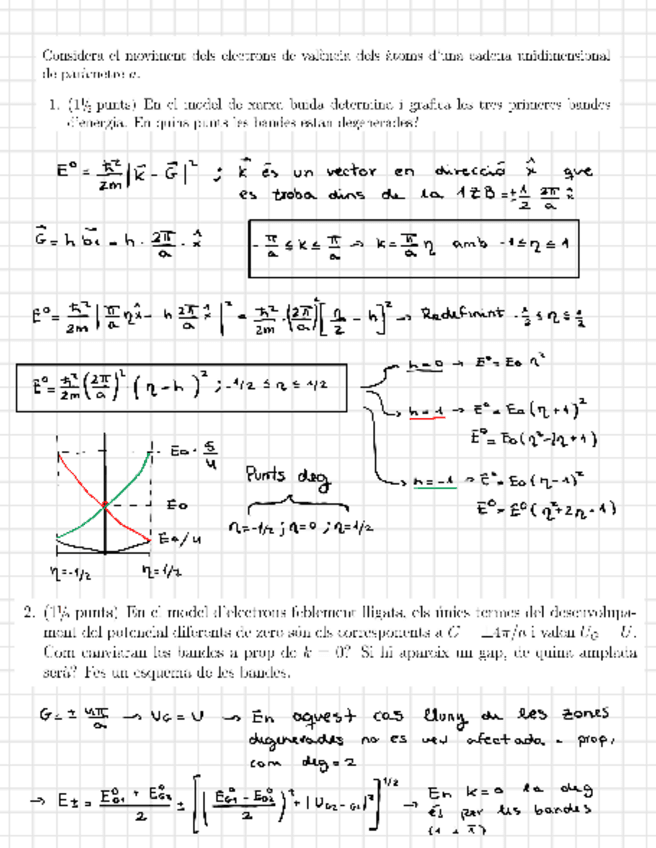 Considera el moviment dels electrons de valència dels àtoms d'una cadena unidimensional
de paràmetre a.
1. (1½ punts) En el model de xarxa buida determina i grafica les tres primeres bandes
d'energia. En quins punts les bandes estan degenerades?
E⁰ = ħ²/2m |k⃗ - G⃗|² ; k⃗ és un vector en direcció x̂ que
es troba dins de la 1ZB = ±1/2 2π/a x̂
G⃗ = h b⃗ = h · 2π/a · x̂
-π/a ≤ k ≤ π/a → k = π/a η amb -1 ≤ η ≤ 1
E⁰ = ħ²/2m |π/a ηx̂ - h 2π/a x̂|² = ħ²/2m · (2π/a)² [η/2 - h]² → Redefinint -1/2 ≤ η ≤ 1/2
E⁰ = ħ²/2m (2π/a)² (η - h)² ; -1/2 ≤ η ≤ 1/2
h=0 → E⁰ = E₀ η²
h=1 → E⁰ = E₀(η+1)²
E⁰ = E₀(η²-2η+1)
h=-1 → E⁰ = E₀(η-1)²
E⁰ = E⁰(η²+2η+1)
E₀ · 5/4
E₀
E₀/4
η=-1/2
η=1/2
Punts deg
η=-1/2 ; η=0 ; η=1/2
2. (1½ punts) En el model d'electrons feblement lligats, els únics termes del desenvolupa-
ment del potencial diferents de zero són els corresponents a G = ±4π/a i valen U_G = U.
Com canviaran les bandes a prop de k = 0? Si hi apareix un gap, de quina amplada
serà? Fes un esquema de les bandes.
G = ± 4π/a → U_G = U → En aquest cas lluny de les zones
degenerades no es veu afectada - prop,
com deg = 2
→ E± = (E⁰_G1 + E⁰_G2)/2 ± [((E⁰_G1 - E⁰_G2)/2)² + |U_G2-G1|²]^1/2 → En k=0 la deg
és per les bandes